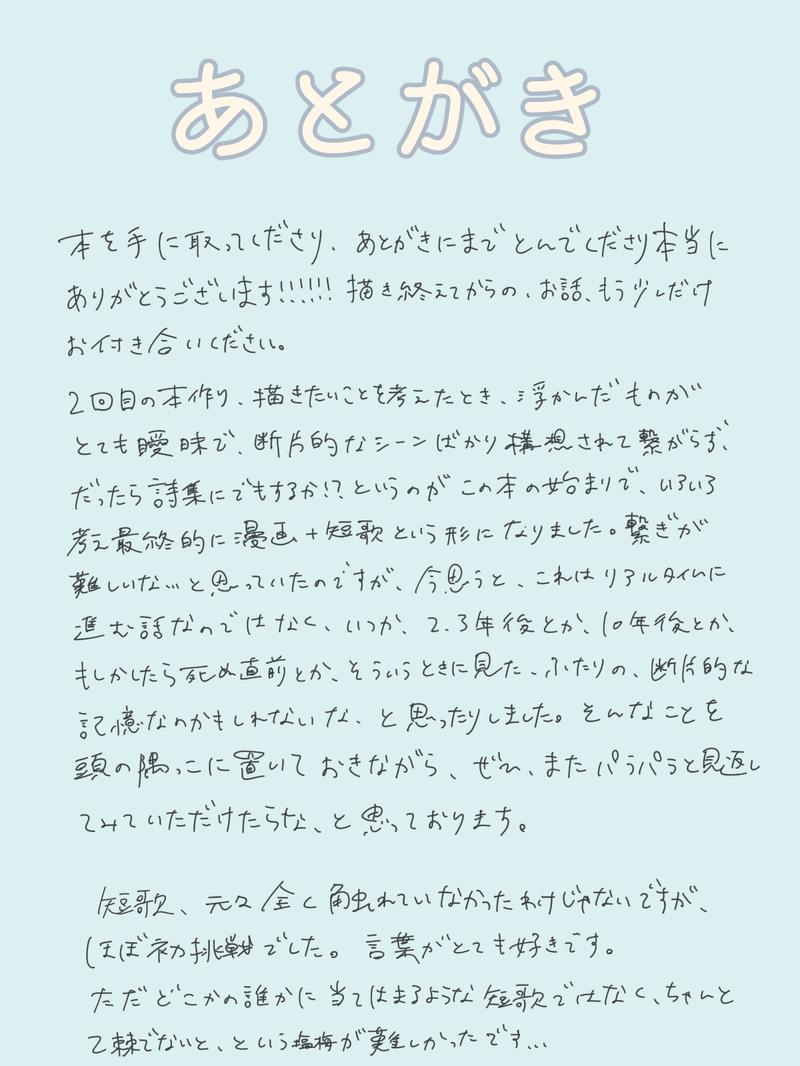 あとがき
本を手に取ってくださり、あとがきにまでとんでくださり本当に
ありがとうございます!!!!!! 描き終えてからの、お話、もう少しだけ
お付き合いください。
2回目の本作り、描きたいことを考えたとき、浮かんだものが
とても曖昧で、断片的なシーンばかり構想されて繋がらず、
だったら詩集にでもするか!?というのがこの本の始まりで、いろいろ
考え最終的に漫画+短歌という形になりました。繋ぎが
難しいな…と思っていたのですが、今思うと、これはリアルタイムに
進む話なのではなく、いつか、2.3年後とか、10年後とか、
もしかしたら死ぬ直前とか、そういうときに見た、ふたりの、断片的な
記憶なのかもしれないな、と思ったりしました。そんなことを
頭の隅っこに置いておきながら、ぜひ、またパラパラと見返し
てみていただけたらな、と思っております。
短歌、元々全く触れていなかったわけじゃないですが、
ほぼ初挑戦でした。言葉がとても好きです。
ただどこかの誰かに当てはまるような短歌ではなく、ちゃんと
2棘でないと、という塩梅が難しかったです...